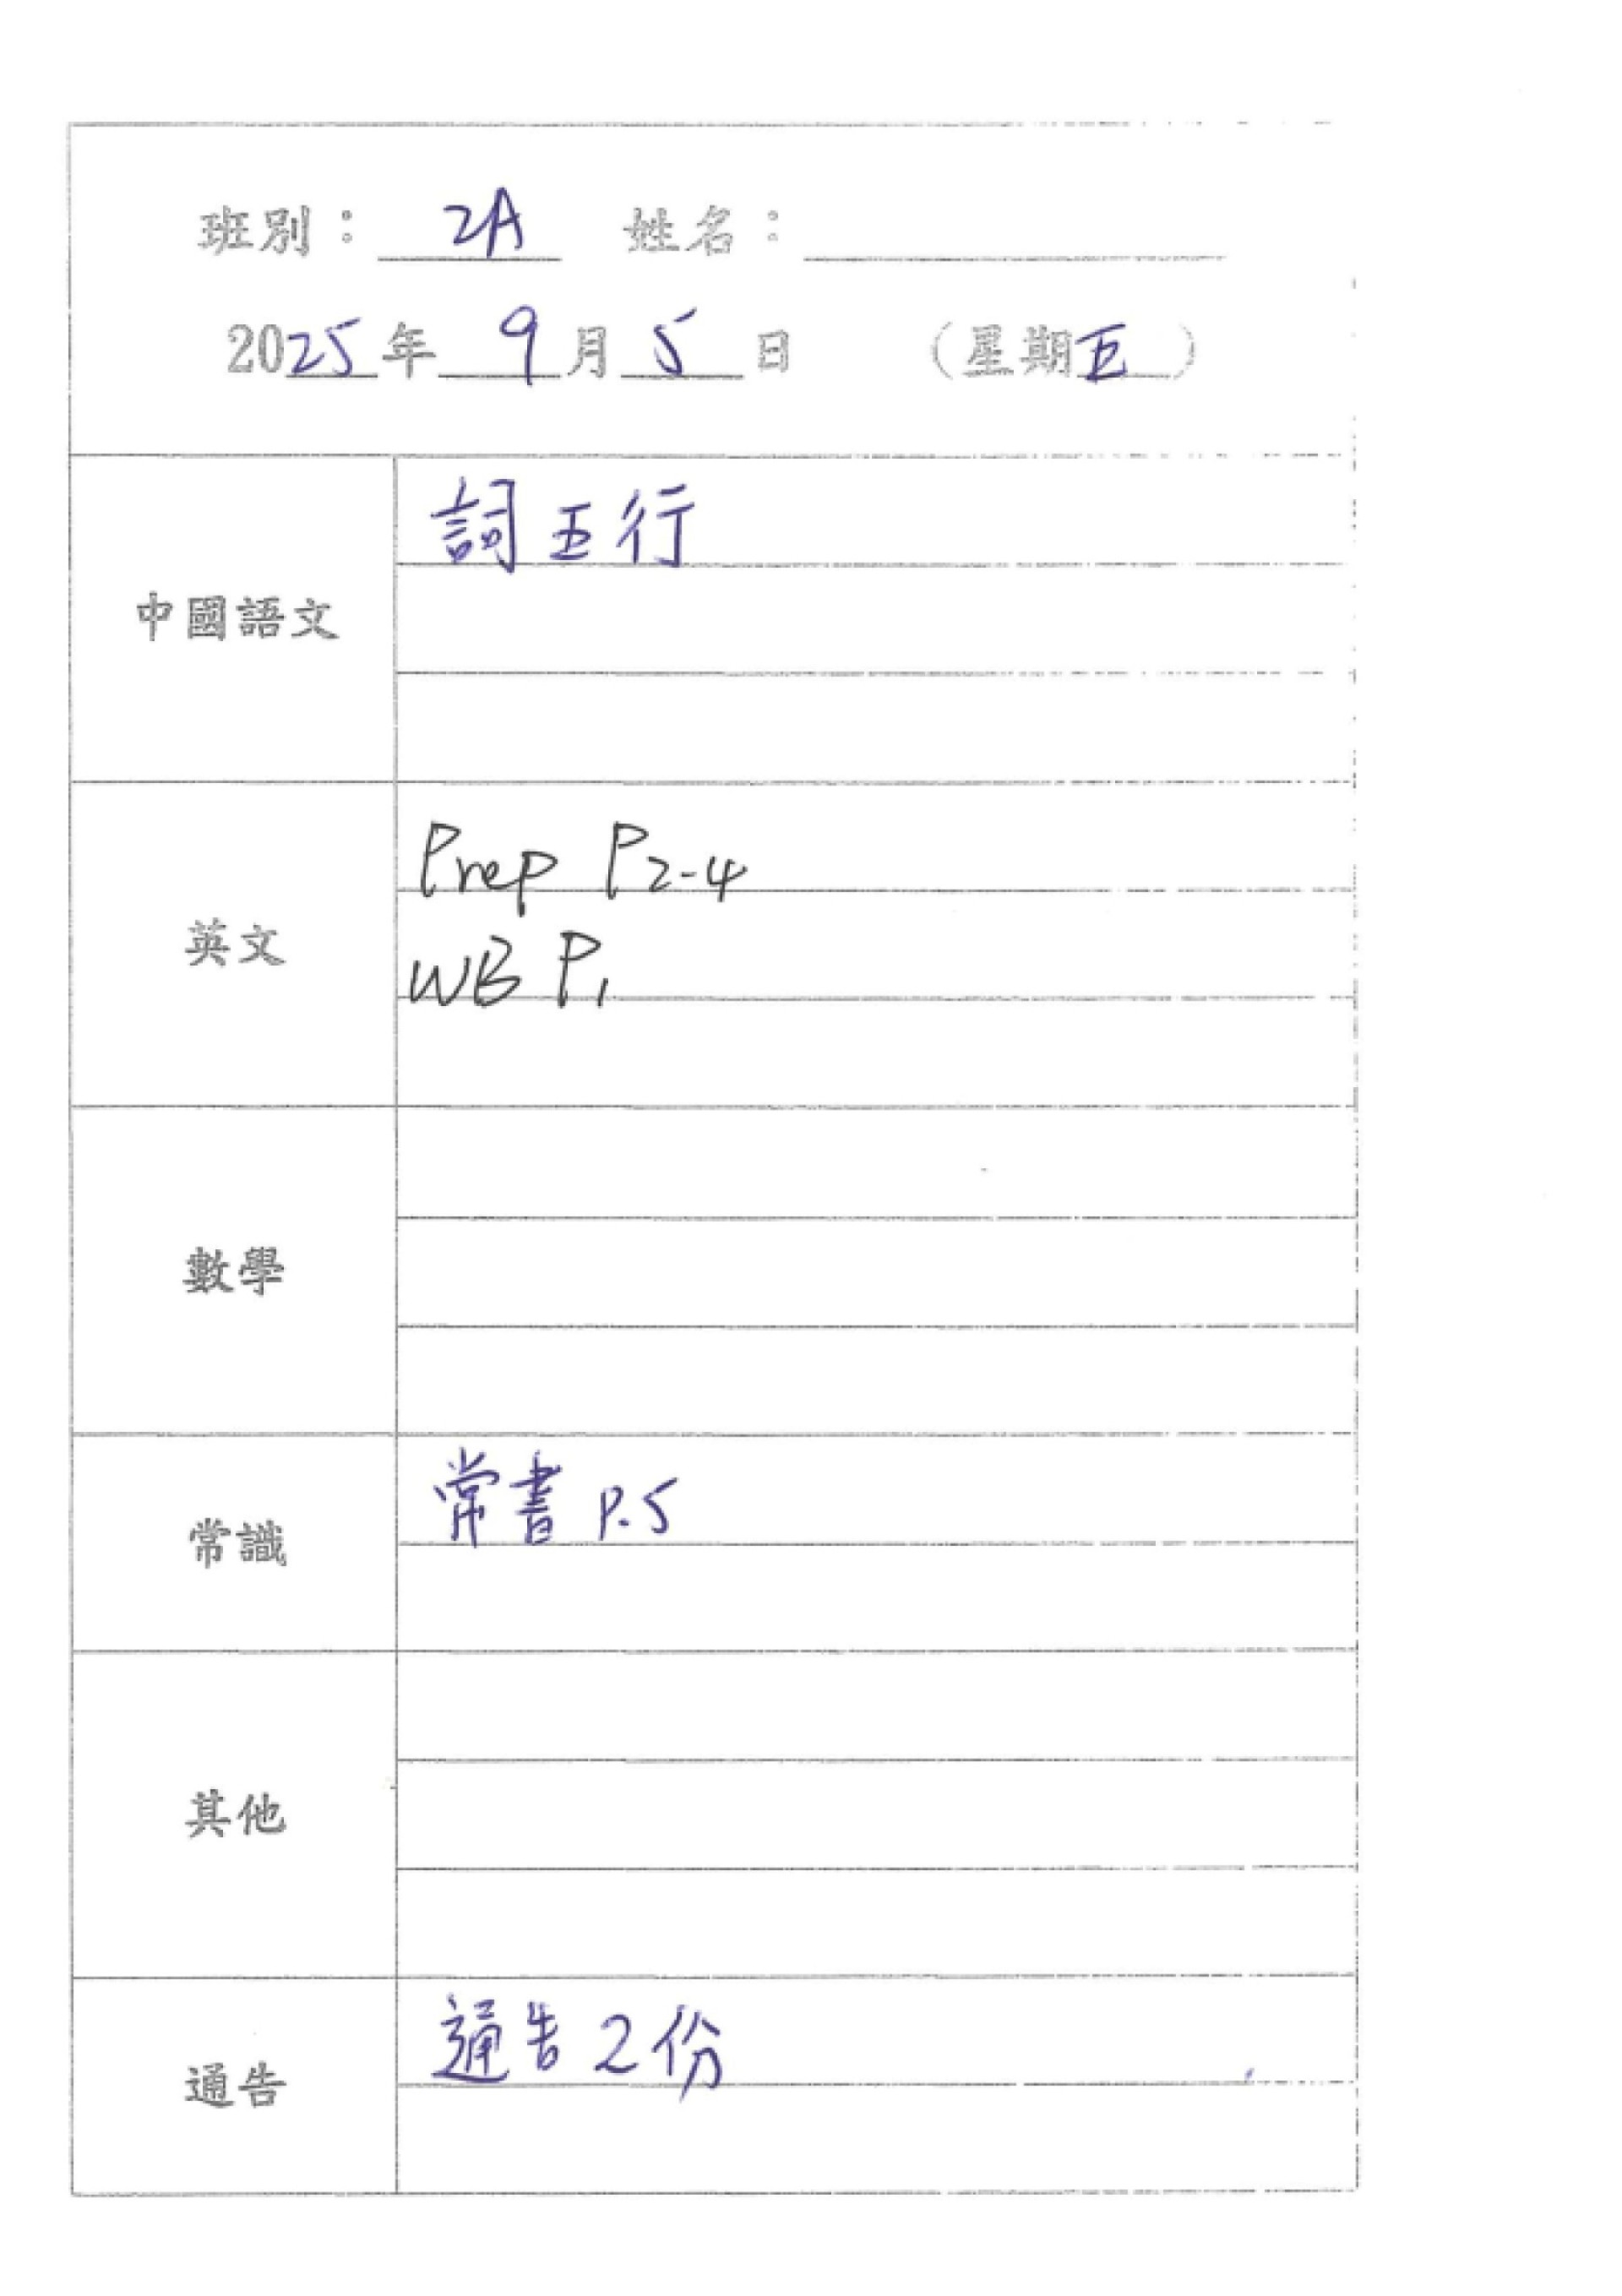 班別： 2A 姓名：
2025年 9月 5日 （星期五）
中國語文
詞五行
英文
Prep P2-4
WB P1
數學
常識
常書 P.5
其他
通告
通告2份